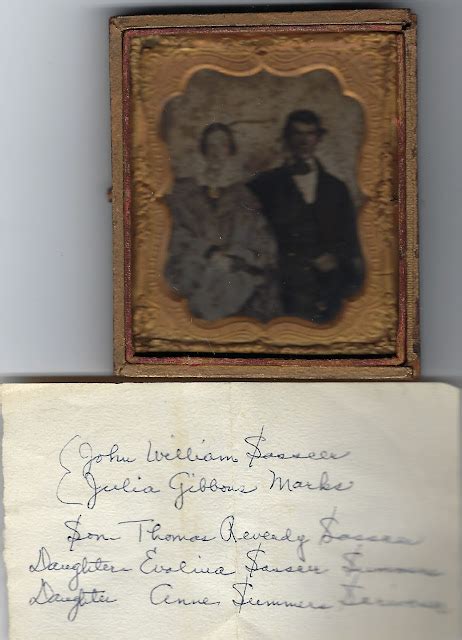 John William Sasscer
Julia Gibbons Marks
Son Thomas Reverdy Sasscer
Daughter Evalina Sasscer
Daughter Anne Summers